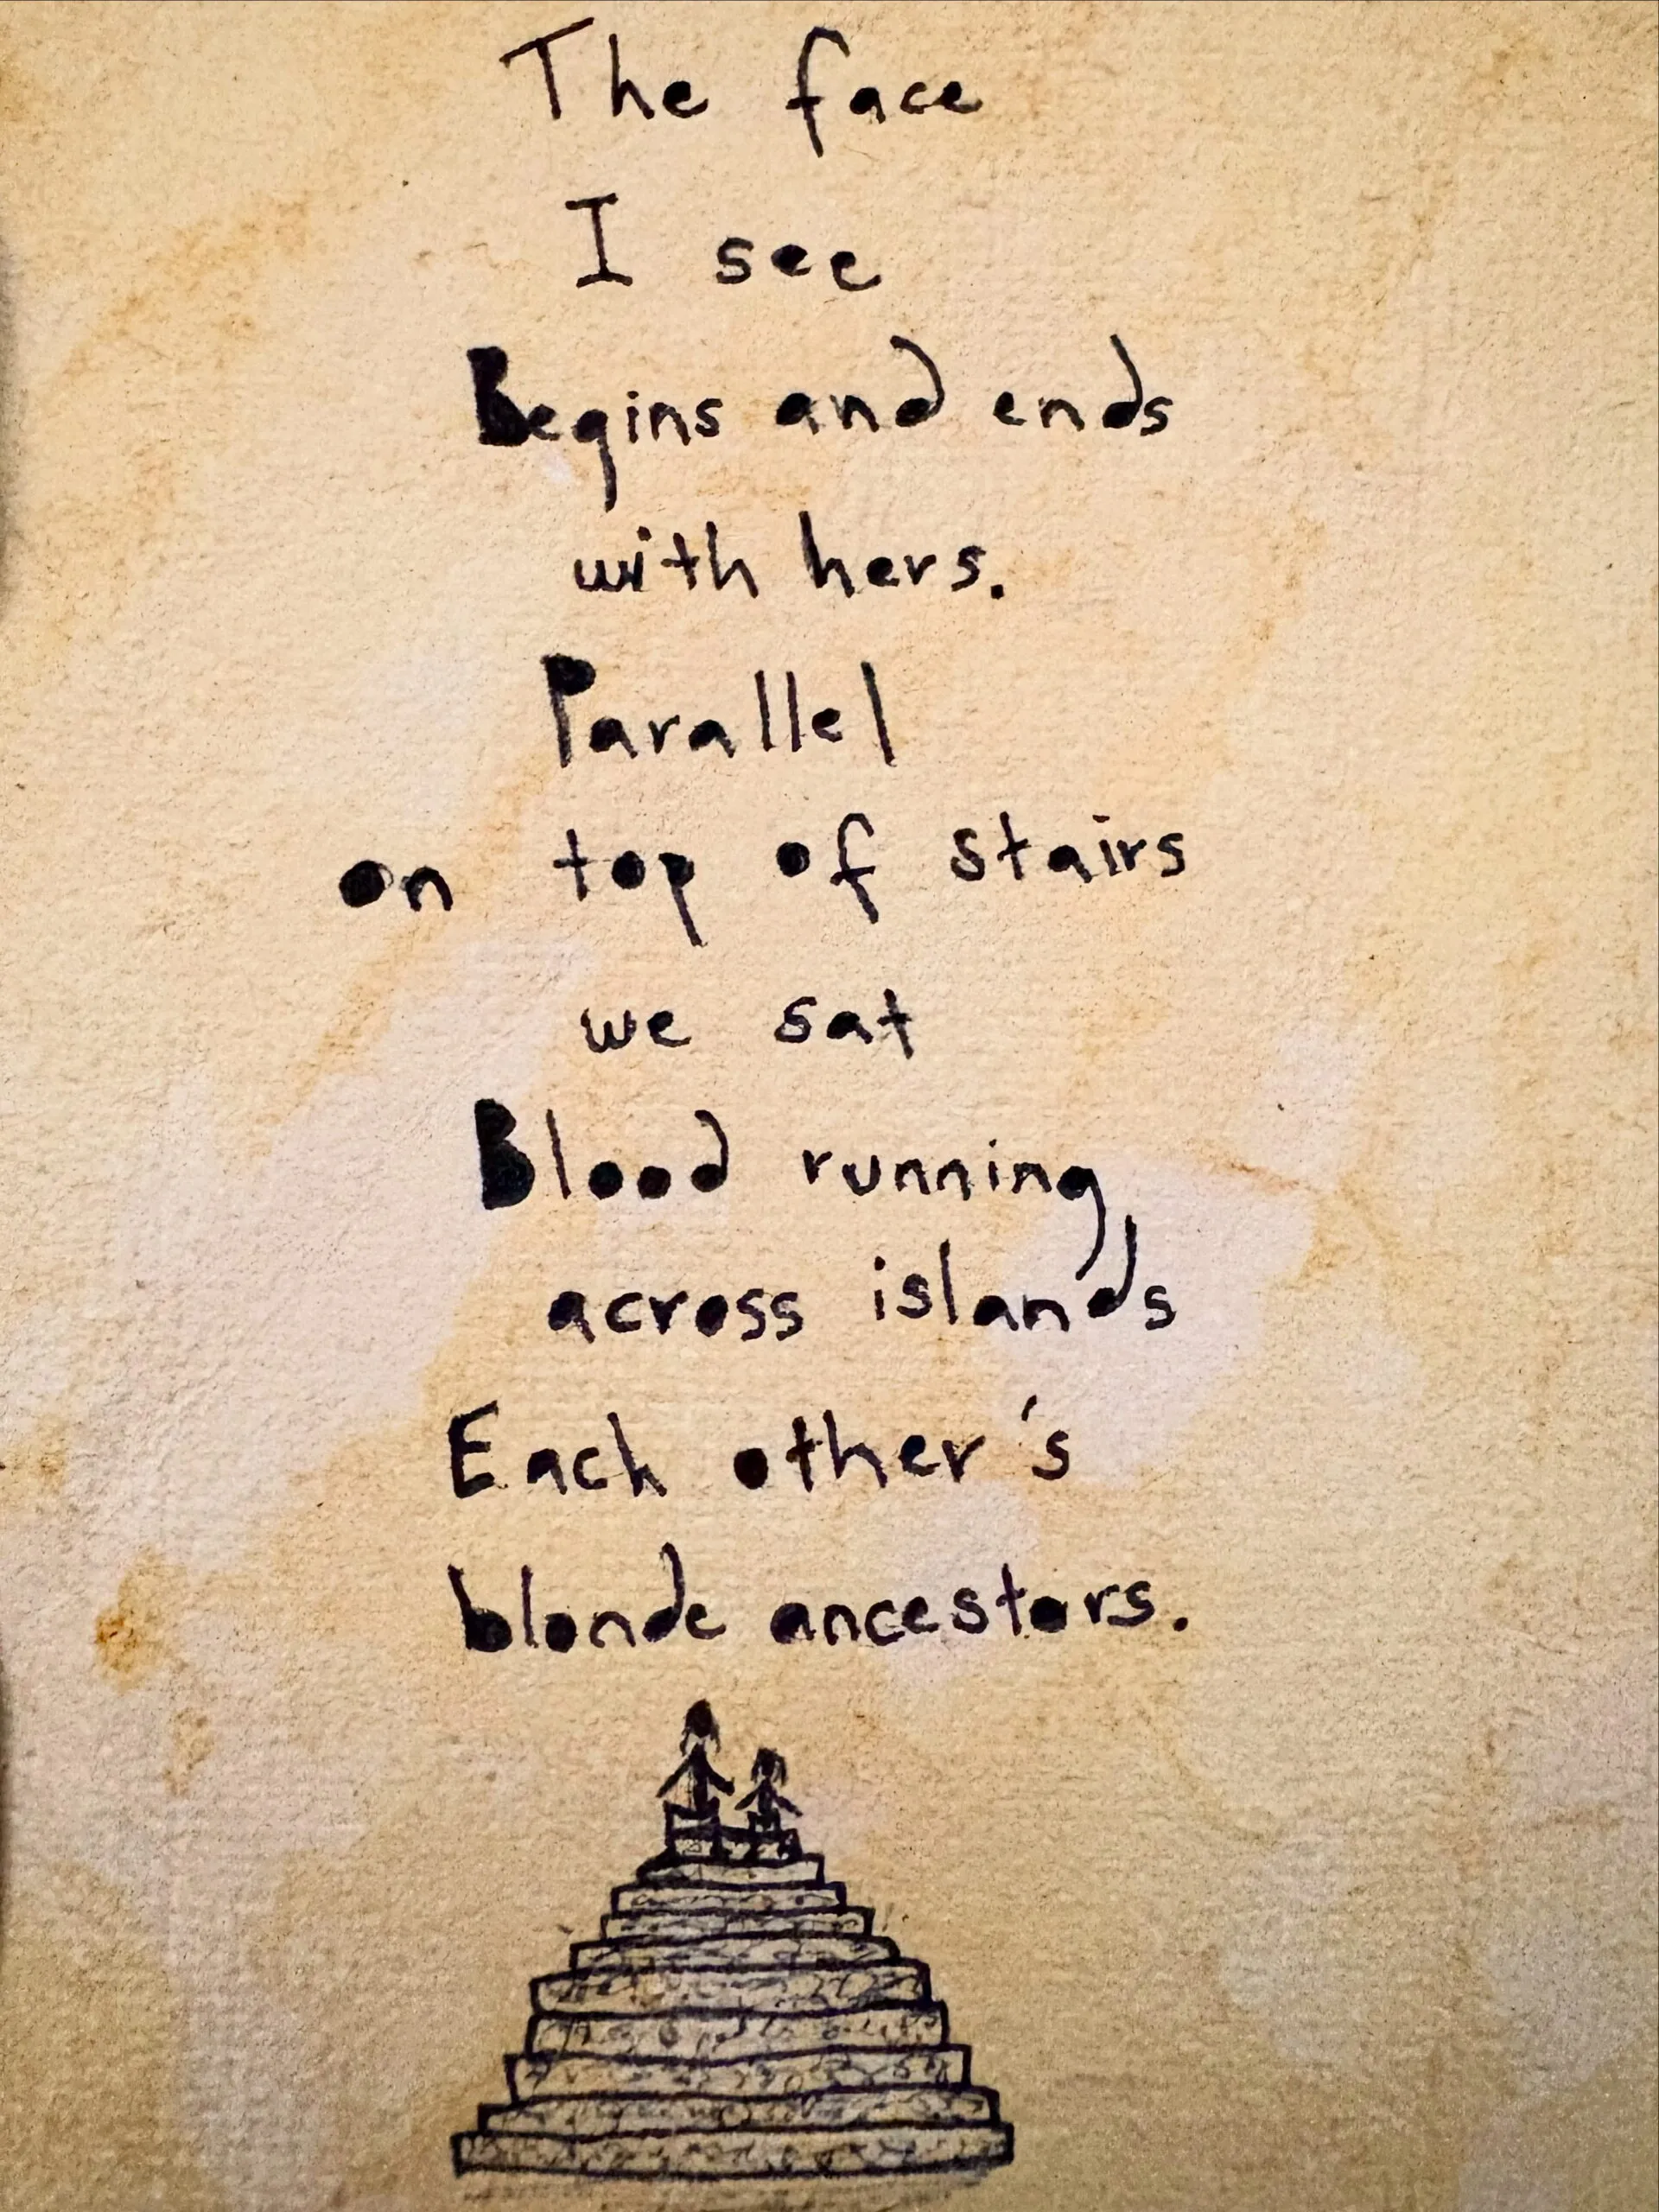 The face
I see
Begins and ends
with hers.
Parallel
on top of stairs
we sat
Blood running
across islands
Each other's
blonde ancestors.